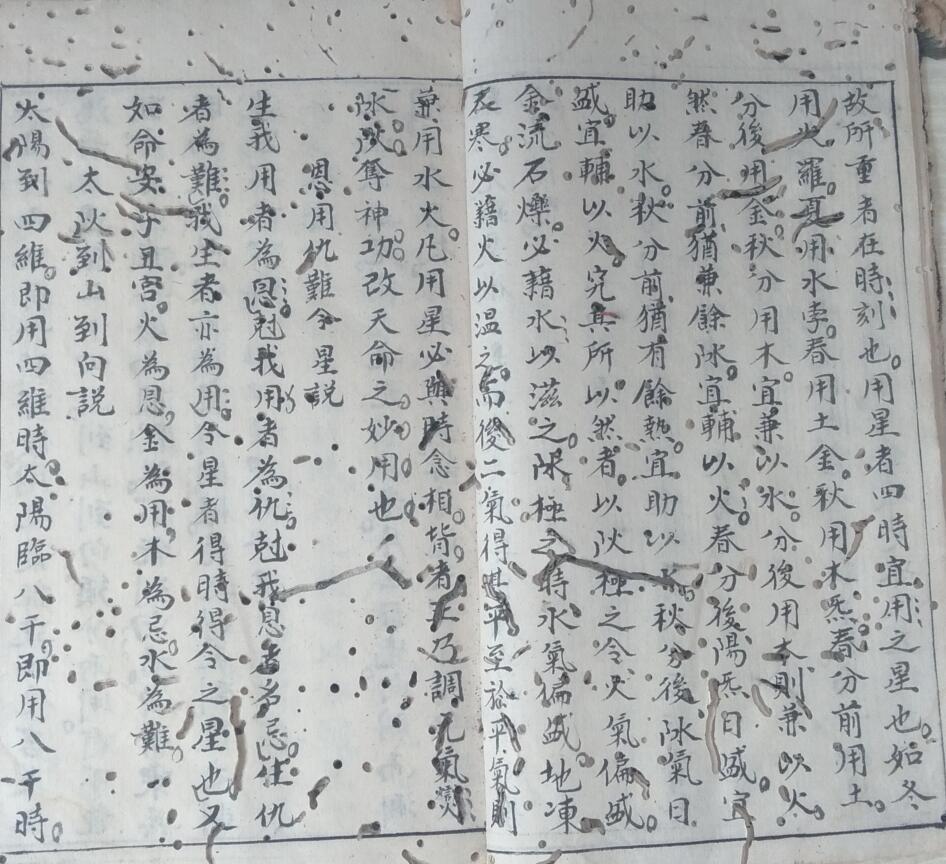 故所重者在時刻也。用星者四時宜用之星也。如冬
用火羅。夏用水孛。春用土金。秋用木炁。春分前用土。
分後用金。秋分用木。宜兼以水。分後用木。則兼以火。
然春分前猶兼餘冰。宜輔以火。春分後陽炁日盛。宜
助以水。秋分前猶有餘熱。宜助以 秋分後冰氣日
盛。宜輔以火。究其所以然者。以炏極之令。火氣偏盛。
金流石爍。必藉水以滋之。冰極之時。水氣偏盛。地凍
寒。必藉火以溫之。而後二氣得其平。至於平氣。則
兼用水火。凡用星必與時令相 者。 乃調元氣。爕
冰炏。奪神功。改天命之妙用也。
恩用仇難令星說
生我用者為恩。尅我用者為仇。尅我恩者為忌。生仇
者為難。我生者亦為用。令星者得時得令之星也。又
如命安子丑宮。火為恩。金為用。木為忌。水為難。
太炏到山到向説
太陽到四維。即用四維時。太陽臨八干。即用八干時。